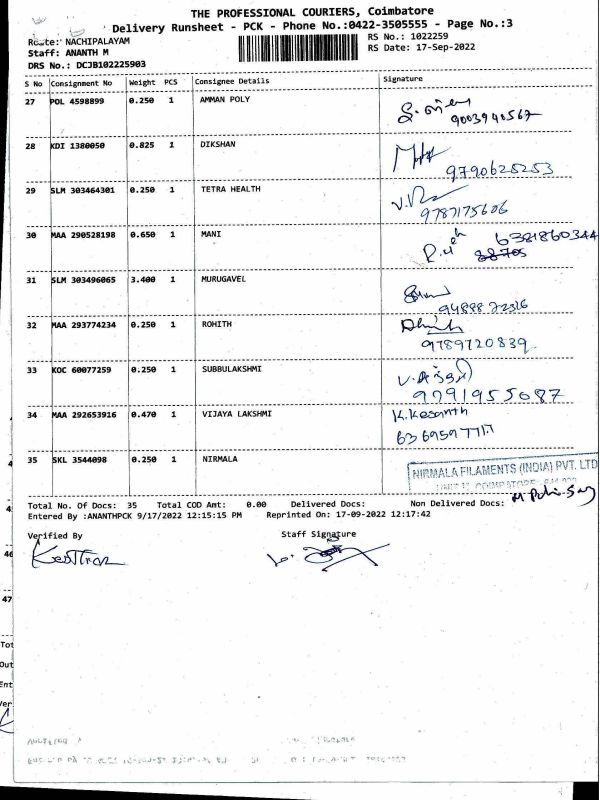 THE PROFESSIONAL COURIERS, Coimbatore
Delivery Runsheet - PCK - Phone No.:0422-3505555 - Page No.:3
Route: NACHIPALAYAM
RS No.: 1022259
Staff: ANANTH M
RS Date: 17-Sep-2022
DRS No.: DCJB102225903
S No Consignment No Weight PCS Consignee Details Signature
27 POL 4598899 0.250 1 AMMAN POLY
9003940567
28 KDI 1380050 0.825 1 DIKSHAN
9790625253
29 SLM 303464301 0.250 1 TETRA HEALTH
9787175606
30 MAA 290528198 0.650 1 MANI 6381860344
31 SLM 303496065 3.400 1 MURUGAVEL
32 MAA 293774234 0.250 1 ROHITH
9789720839
33 KOC 60077259 0.250 1 SUBBULAKSHMI
9791955087
34 MAA 292653916 0.470 1 VIJAYA LAKSHMI K.Kesanth
35 SKL 3544098 0.250 1 NIRMALA
NIRMALA FILAMENTS (INDIA) PVT. LTD
Total No. Of Docs: 35 Total COD Amt: 0.00 Delivered Docs: Non Delivered Docs:
Entered By :ANANTHPCK 9/17/2022 12:15:15 PM Reprinted On: 17-09-2022 12:17:42
Verified By Staff Signature